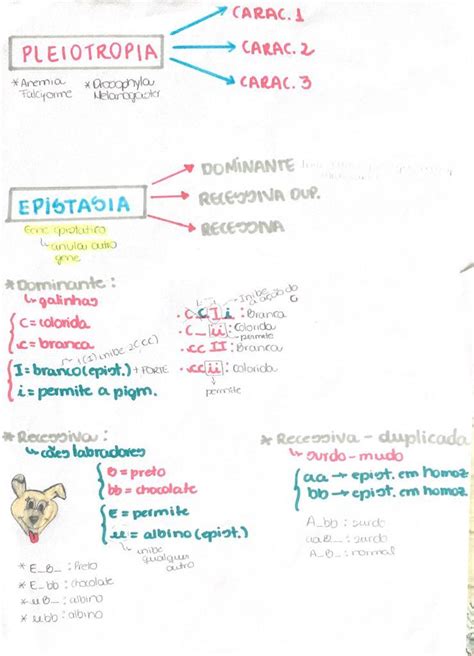 CARAC. 1
PLEIOTROPIA
CARAC. 2
CARAC. 3
*Anemia
Falciforme
*Drosophyla
Melanogaster
DOMINANTE
EPISTASIA
RECESSIVA DUP.
RECESSIVA
Gene epistático
anula outro
gene
*Dominante:
galinhas
C = colorida
c = branca
I = branco (epist.) + FORTE
i = permite a pigm.
Inibe
a ação do
C
C I i : Branca
C_ ii : Colorida
permite
cc II : Branca
cc ii : Colorida
permite
*Recessiva:
cães labradores
B = preto
bb = chocolate
E = permite
ee = albino (epist.)
inibe
qualquer
outro
* E_B_ : Preto
* E_bb : chocolate
* eeB_ : albino
* eebb : albino
*Recessiva - duplicada
surdo-mudo
aa → epist. em homoz.
bb → epist. em homoz.
A_bb : surdo
aaB_ : surdo
A_B_ : normal